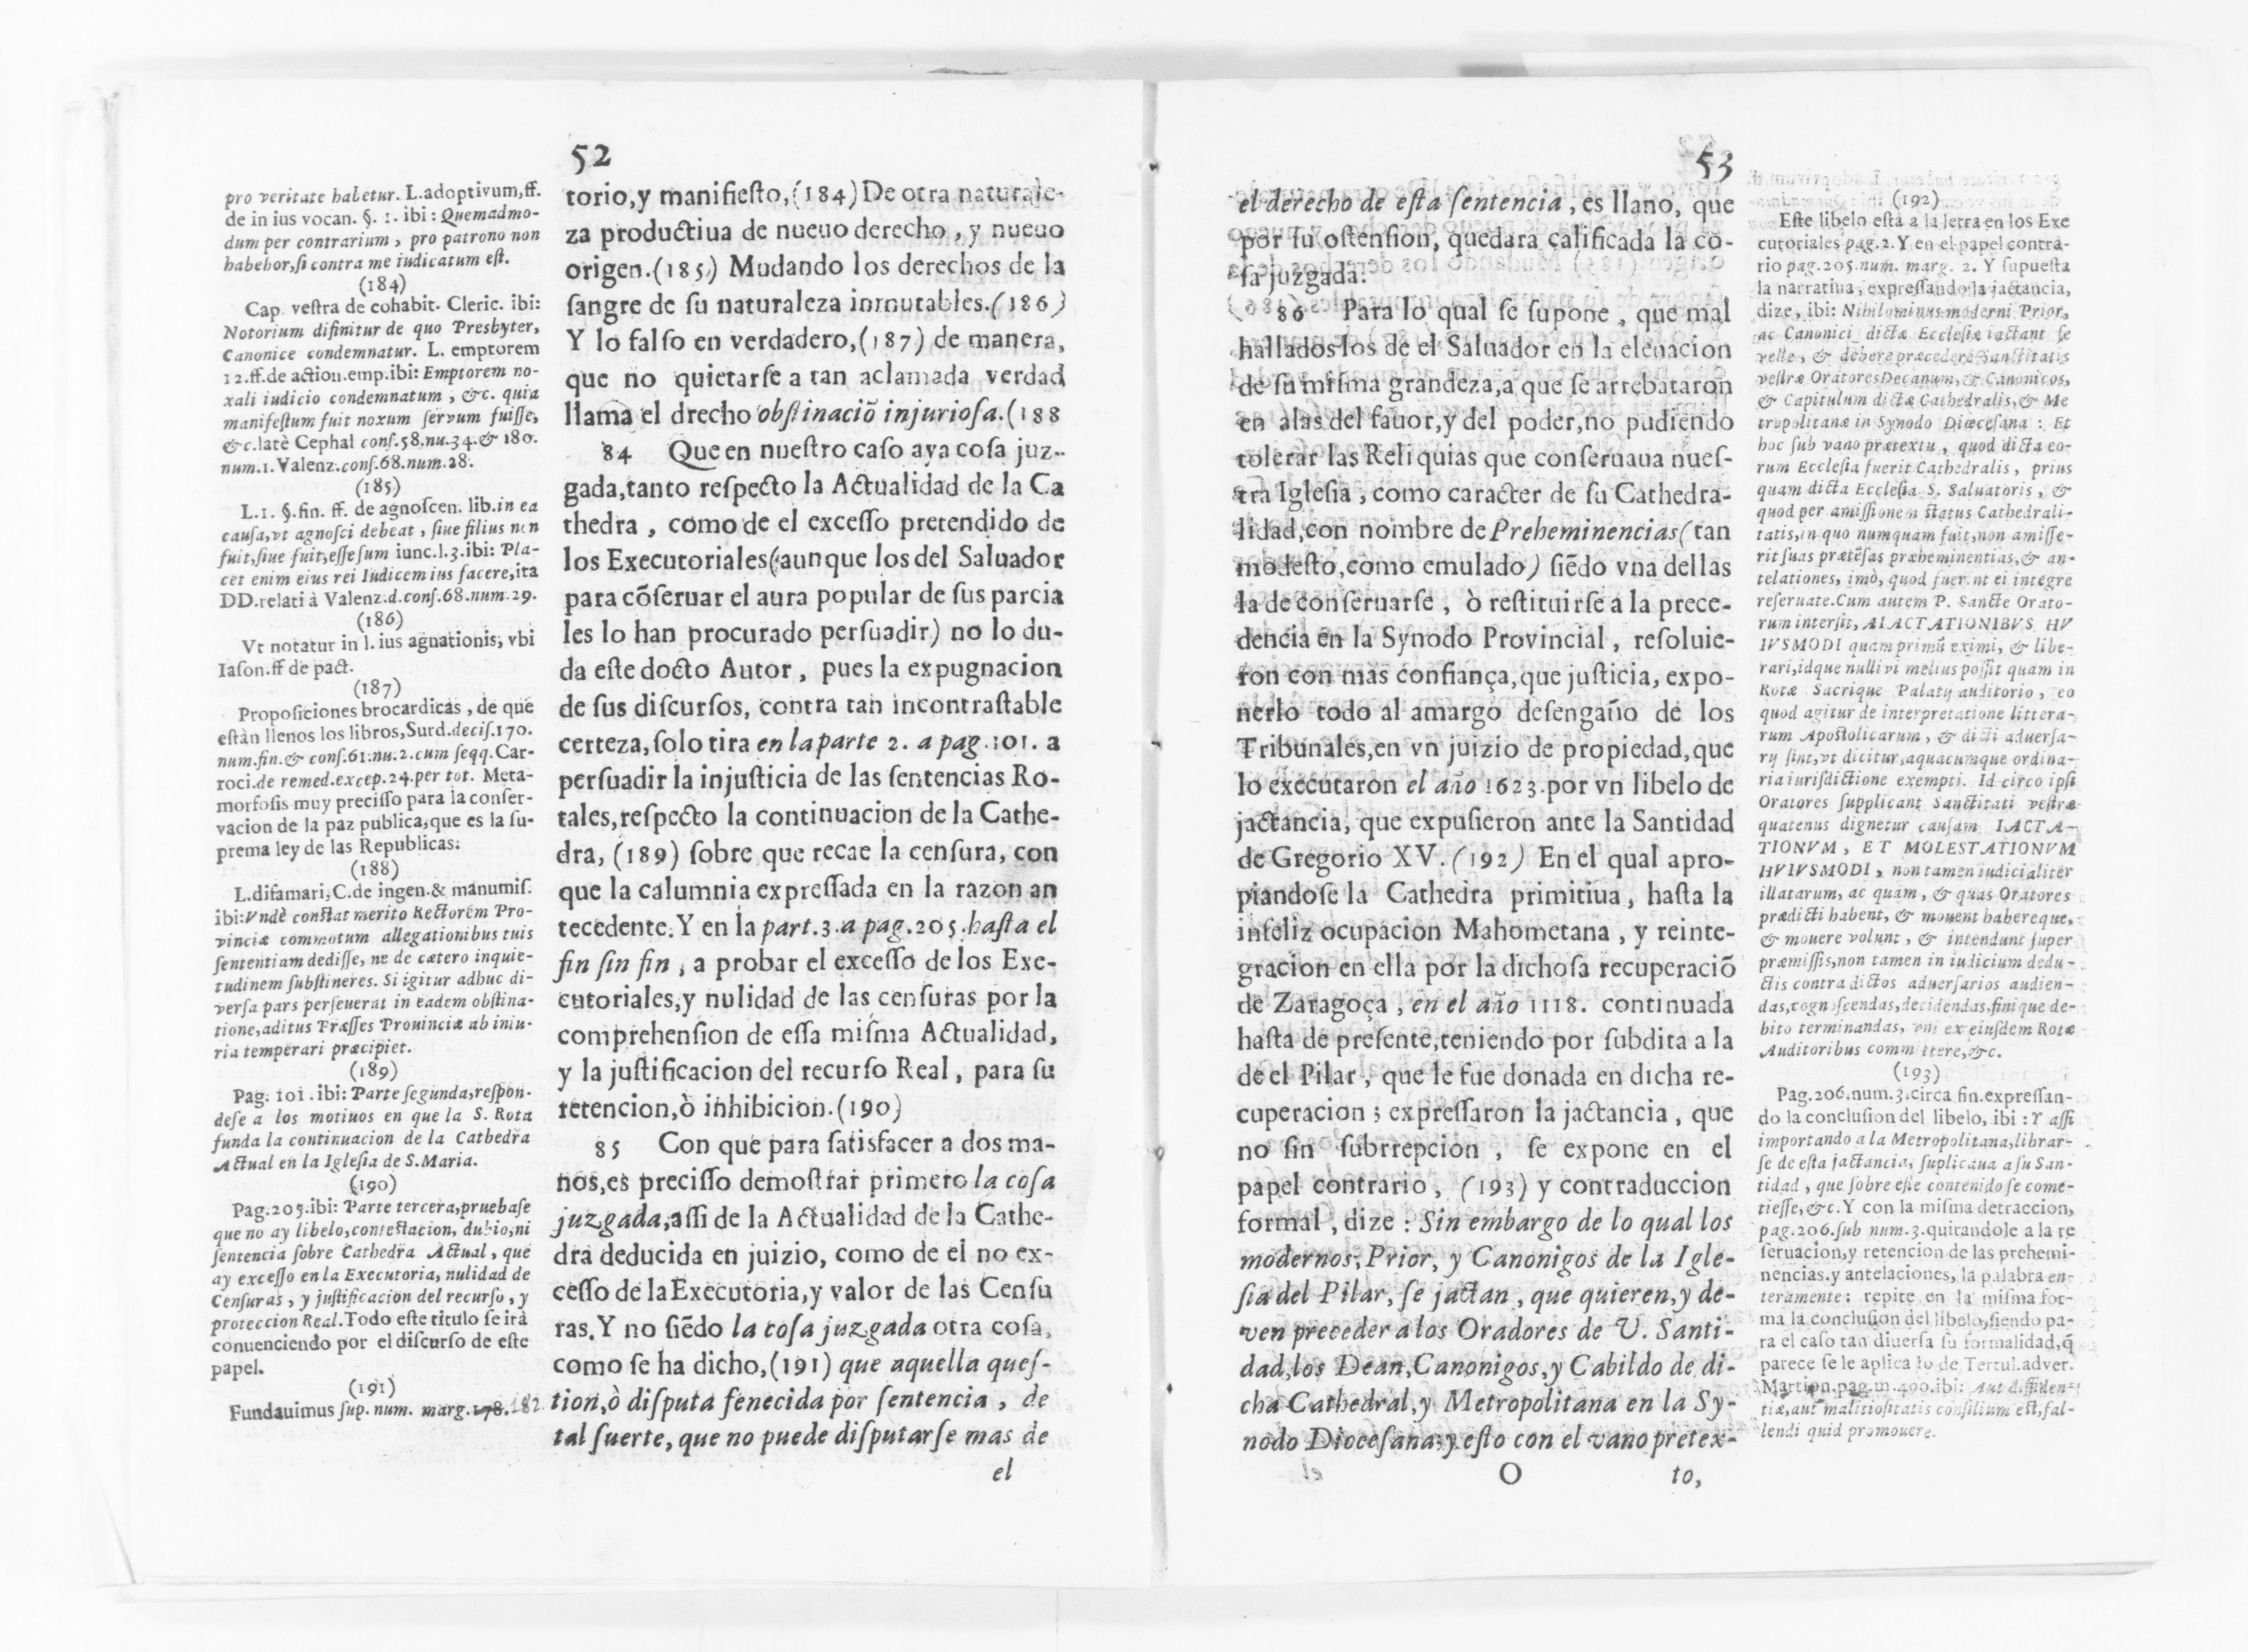 52
pro veritate habetur. L.adoptivum,ff.
de in ius vocan. §. 1. ibi : Quemadmo-
dum per contrarium , pro patrono non
habebor,ſi contra me iudicatum eſt.
(184)
Cap. veſtra de cohabit. Cleric. ibi:
Notorium difinitur de quo Presbyter,
Canonice condemnatur. L. emptorem
12.ff.de action.emp.ibi: Emptorem no-
xali iudicio condemnatum , &c. quia
manifeſtum fuit noxum ſervum fuiſſe,
&c.latè Cephal conſ.58.nu.34.& 180.
num.1. Valenz.conſ.68.num.28.
(185)
L.1. §.fin. ff. de agnoſcen. lib.in ea
cauſa,vt agnoſci debeat , ſiue filius non
fuit,ſiue fuit,eſſe ſum iunc.l.3.ibi: Pla-
cet enim eius rei Iudicem ius facere,ita
DD.relati à Valenz.d.conſ.68.num.29.
(186)
Vt notatur in l. ius agnationis, vbi
Iaſon.ff de pact.
(187)
Propoſiciones brocardicas , de que
eſtàn llenos los libros,Surd.deciſ.170.
num.fin.& conſ.61.nu.2.cum ſeqq.Car-
roci.de remed.excep.24.per tot. Meta-
morfoſis muy preciſſo para la conſer-
vacion de la paz publica,que es la ſu-
prema ley de las Republicas.
(188)
L.difamari,C.de ingen.& manumiſ.
ibi:Vndè conſtat merito Rectorem Pro-
vinciæ commotum allegationibus tuis
ſententiam dediſſe, ne de cætero inquie-
tudinem ſubſtineres. Si igitur adhuc di-
verſa pars perſeuerat in eadem obſtina-
tione,aditus Præſſes Prouinciæ ab iniu-
ria temperari præcipiet.
(189)
Pag. 101 . ibi: Parte ſegunda,reſpon-
deſe a los motiuos en que la S. Rota
funda la continuacion de la Cathedra
Actual en la Igleſia de S.Maria.
(190)
Pag.205.ibi: Parte tercera,pruebaſe
que no ay libelo,conteſtacion, dubio,ni
ſentencia ſobre Cathedra Actual , que
ay exceſſo en la Executoria, nulidad de
Cenſuras , y juſtificacion del recurſo , y
proteccion Real.Todo eſte titulo ſe irà
conuenciendo por el diſcurſo de eſte
papel.
(191)
Fundauimus ſup. num. marg.178. 182
torio,y manifieſto,(184) De otra naturale-
za productiua de nueuo derecho , y nueuo
origen.(185) Mudando los derechos de la
ſangre de ſu naturaleza inmutables.(186)
Y lo falſo en verdadero,(187) de manera,
que no quietarſe a tan aclamada verdad
llama el drecho obſtinaciõ injurioſa.(188
84 Que en nueſtro caſo aya coſa juz-
gada,tanto reſpecto la Actualidad de la Ca
thedra , como de el exceſſo pretendido de
los Executoriales(aunque los del Saluador
para cõſeruar el aura popular de ſus parcia
les lo han procurado perſuadir) no lo du-
da eſte docto Autor , pues la expugnacion
de ſus diſcurſos, contra tan incontraſtable
certeza, ſolo tira en la parte 2. a pag.101. a
perſuadir la injuſticia de las ſentencias Ro-
tales,reſpecto la continuacion de la Cathe-
dra, (189) ſobre que recae la cenſura, con
que la calumnia expreſſada en la razon an
tecedente.Y en la part.3.a pag.205.haſta el
fin ſin fin , a probar el exceſſo de los Exe-
cutoriales,y nulidad de las cenſuras por la
comprehenſion de eſſa miſma Actualidad,
y la juſtificacion del recurſo Real , para ſu
retencion,ò inhibicion.(190)
85 Con que para ſatisfacer a dos ma-
nos,es preciſſo demoſtrar primero la coſa
juzgada,aſſi de la Actualidad de la Cathe-
dra deducida en juizio, como de el no ex-
ceſſo de la Executoria,y valor de las Cenſu
ras.Y no ſiẽdo la coſa juzgada otra coſa,
como ſe ha dicho,(191) que aquella queſ-
tion,ò diſputa fenecida por ſentencia , de
tal ſuerte, que no puede diſputarſe mas de
el
53
el derecho de eſta ſentencia , es llano, que
por ſu oſtenſion, quedara calificada la co-
ſa juzgada.
86 Para lo qual ſe ſupone , que mal
hallados los de el Saluador en la eleuacion
de ſu miſma grandeza,a que ſe arrebataron
en alas del fauor,y del poder,no pudiendo
tolerar las Reliquias que conſeruaua nueſ-
tra Igleſia , como caracter de ſu Cathedra-
lidad,con nombre de Preheminencias(tan
modeſto,como emulado) ſiẽdo vna dellas
la de conſeruarſe , ò reſtituirſe a la prece-
dencia en la Synodo Provincial , reſoluie-
ron con mas confiança,que juſticia, expo-
nerlo todo al amargo deſengaño de los
Tribunales,en vn juizio de propiedad,que
lo executaron el año 1623.por vn libelo de
jactancia, que expuſieron ante la Santidad
de Gregorio XV. (192) En el qual apro-
piandoſe la Cathedra primitiua , haſta la
infeliz ocupacion Mahometana , y reinte-
gracion en ella por la dichoſa recuperaciõ
de Zaragoça , en el año 1118. continuada
haſta de preſente,teniendo por ſubdita a la
de el Pilar , que le fue donada en dicha re-
cuperacion ; expreſſaron la jactancia , que
no ſin ſubrrepcion , ſe expone en el
papel contrario, (193) y contraduccion
formal , dize : Sin embargo de lo qual los
modernos, Prior, y Canonigos de la Igle-
ſia del Pilar, ſe jactan , que quieren,y de-
ven preceder a los Oradores de V. Santi-
dad,los Dean,Canonigos,y Cabildo de di-
cha Cathedral,y Metropolitana en la Sy-
nodo Dioceſana;y eſto con el vano pretex-
O to,
(192)
Eſte libelo eſtà a la letra en los Exe
cutoriales pag.2.Y en el papel contra-
rio pag.205.num. marg. 2. Y ſupueſta
la narratiua, expreſſando la jactancia,
dize, ibi: Nihilominus moderni Prior,
ac Canonici dictæ Eccleſiæ iactant ſe
velle, & debere præcedere Sanctitatis
veſtræ Oratores Decanum,& Canonicos,
& Capitulum dictæ Cathedralis,& Me
tropolitanæ in Synodo Diœceſana : Et
hoc ſub vano prætextu , quod dicta eo-
rum Eccleſia fuerit Cathedralis , prius
quam dicta Eccleſia S. Saluatoris , &
quod per amiſſionem ſtatus Cathedrali-
tatis,in quo numquam fuit,non amiſſe-
rit ſuas prætẽſas præheminentias,& an-
telationes, imò, quod fuerint ei integre
reſeruate.Cum autem P. Sancte Orato-
rum interſit, A IACTATIONIBVS HV
IVSMODI quam primũ eximi, & libe-
rari,idque nulli vi melius poſſit quam in
Rotæ Sacrique Palatij auditorio , eo
quod agitur de interpretatione littera-
rum Apoſtolicarum , & dicti aduerſa-
rij ſint,vt dicitur,aquacumque ordina-
ria iuriſdictione exempti. Id circo ipſi
Oratores ſupplicant Sanctitati veſtræ
quatenus dignetur cauſam IACTA-
TIONVM , ET MOLESTATIONVM
HVIVSMODI , non tamen iudicialiter
illatarum, ac quam , & quas Oratores
prædicti habent, & mouent habereque,
& mouere volunt , & intendunt ſuper
præmiſſis,non tamen in iudicium dedu-
ctis contra dictos aduerſarios audien-
das,cognoſcendas,decidendas,finique de-
bito terminandas, vni ex eiuſdem Rotæ
Auditoribus committere,&c.
(193)
Pag.206.num.3.circa fin.expreſſan-
do la concluſion del libelo, ibi : Y aſſi
importando a la Metropolitana,librar-
ſe de eſta jactancia, ſuplicaua a ſu San-
tidad , que ſobre eſte contenido ſe come-
tieſſe,&c.Y con la miſma detraccion,
pag.206.ſub num.3.quitandole a la re
ſeruacion,y retencion de las prehemi-
nencias.y antelaciones, la palabra en-
teramente: repite en la miſma for-
ma la concluſion del libelo,ſiendo pa-
ra el caſo tan diuerſa ſu formalidad,q̃
parece ſe le aplica lo de Tertul.adver.
Martion.pag.m.400.ibi: Aut diffiden-
tiæ,aut malitioſitatis conſilium eſt,fal-
lendi quid promouere.